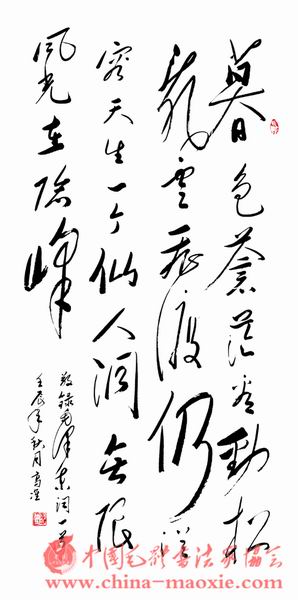 暮色蒼茫看勁松
亂雲飛渡仍從
容天生一个仙人洞無限
風光在險峰
敬錄毛澤東詞一首
壬辰年秋月
中國毛體書法家協會
www.china-maoxie.com